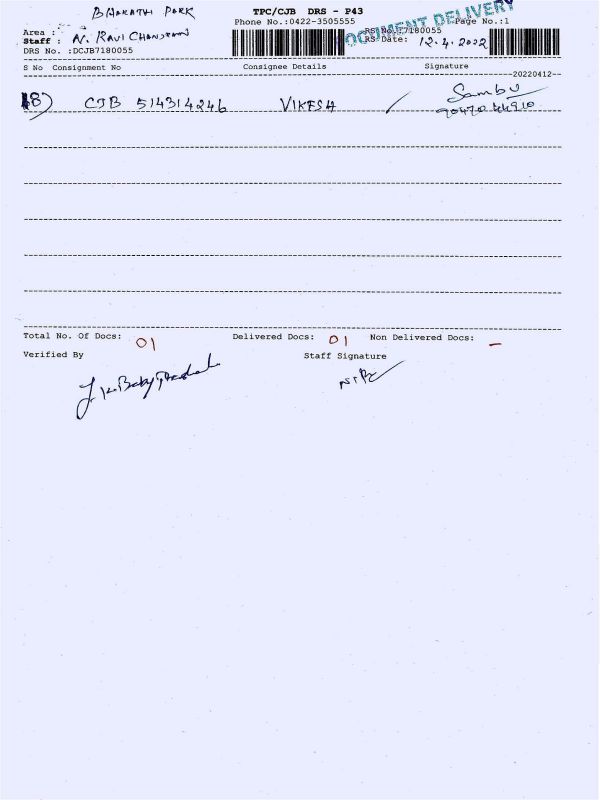 BHARATHI PARK
TPC/CJB DRS - P43
DOCUMENT DELIVERY
Phone No.:0422-3505555
Page No.:1
Area :
Staff : N. RAVI CHANDRAN
RS No.:7180055
RS Date: 12.4.2022
DRS No. :DCJB7180055
S No Consignment No Consignee Details Signature
20220412
18) CJB 514314246 VIKESH Sambu
90470 44910
Total No. Of Docs: 01 Delivered Docs: 01 Non Delivered Docs: -
Verified By Staff Signature